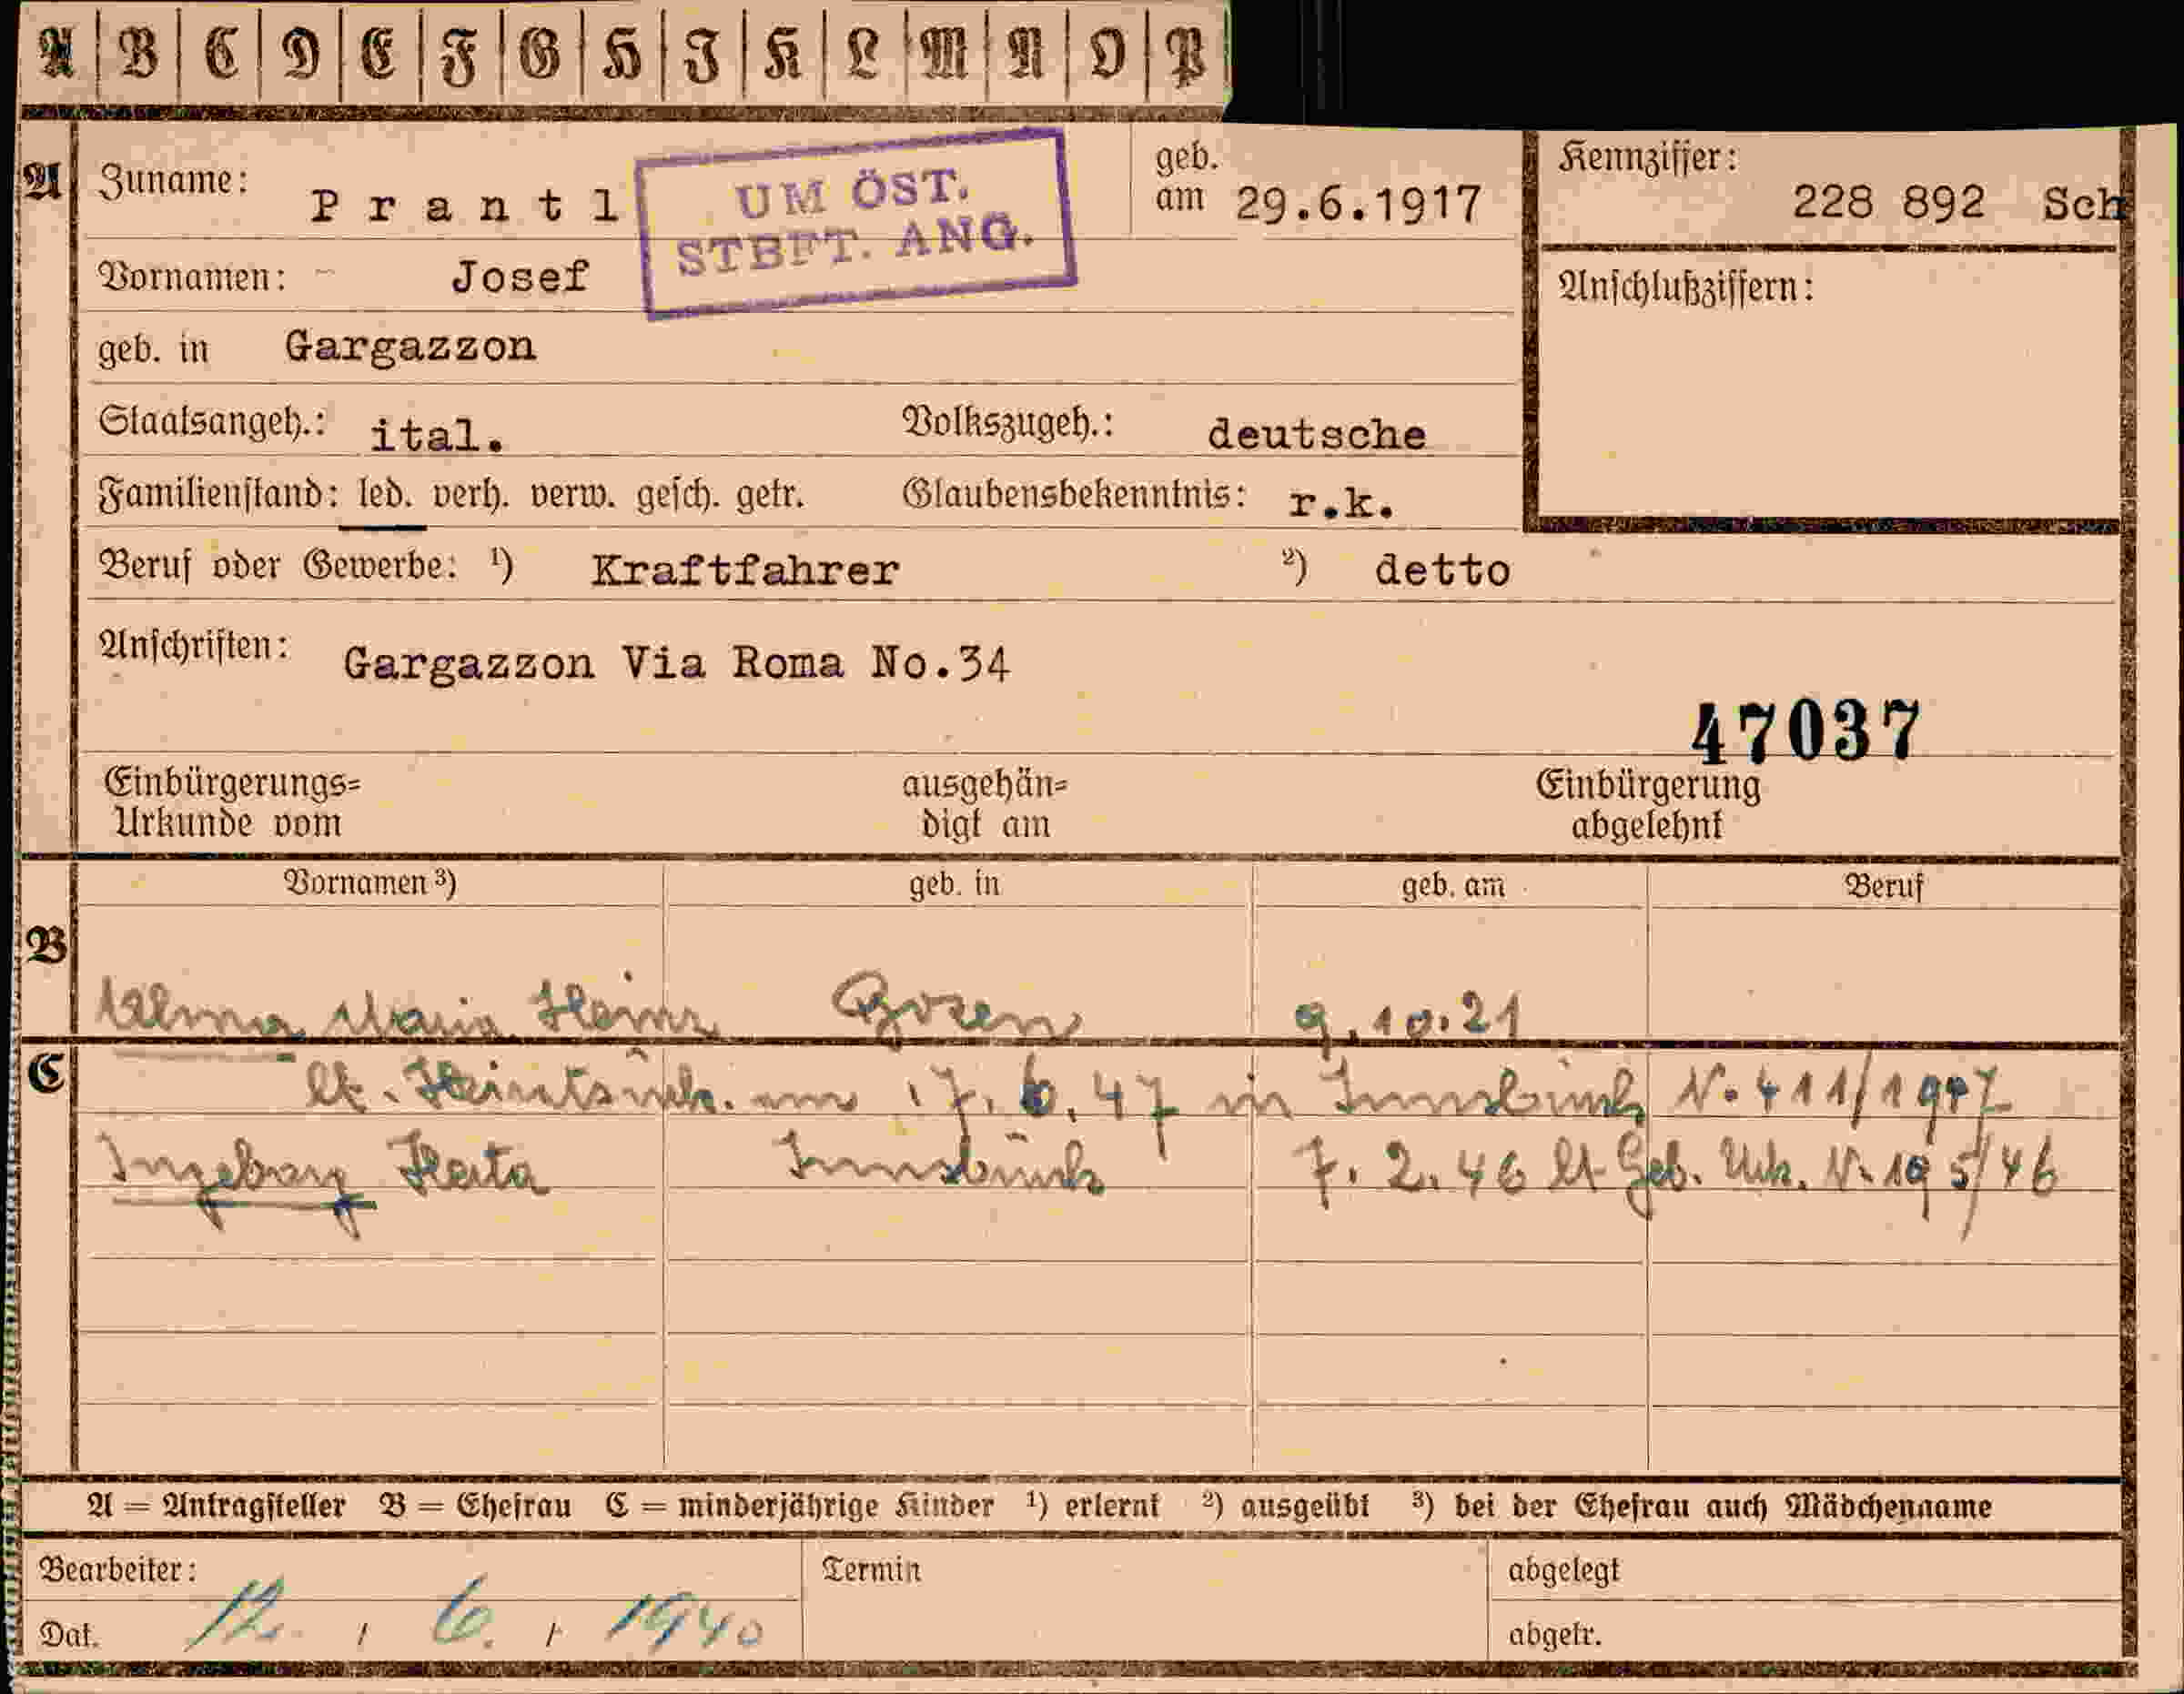 A B C D E F G H J K L M N O P
A Zuname: Prantl geb. am 29.6.1917 Kennziffer: 228 892 Sch
UM ÖST.
STBFT. ANG.
Vornamen: Josef Anschlußziffern:
geb. in Gargazzon
Staatsangeh.: ital. Volkszugeh.: deutsche
Familienstand: led. verh. verw. gesch. getr. Glaubensbekenntnis: r.k.
Beruf oder Gewerbe: ¹) Kraftfahrer ²) detto
Anschriften: Gargazzon Via Roma No.34
47037
Einbürgerungs= ausgehän= Einbürgerung
Urkunde vom digt am abgelehnt
Vornamen ³) geb. in geb. am Beruf
B
Maria Bozen 9.10.21
C
lt. Heiratsurk. 17.6.47 in Innsbruck N. 411/1947
Ingeborg Herta Innsbruck 7.2.46 lt Geb. Urk. N. 195/46
A = Antragsteller B = Ehefrau C = minderjährige Kinder ¹) erlernt ²) ausgeübt ³) bei der Ehefrau auch Mädchenname
Bearbeiter: Termin abgelegt
Dat. 12. / 6. / 1940 abgetr.